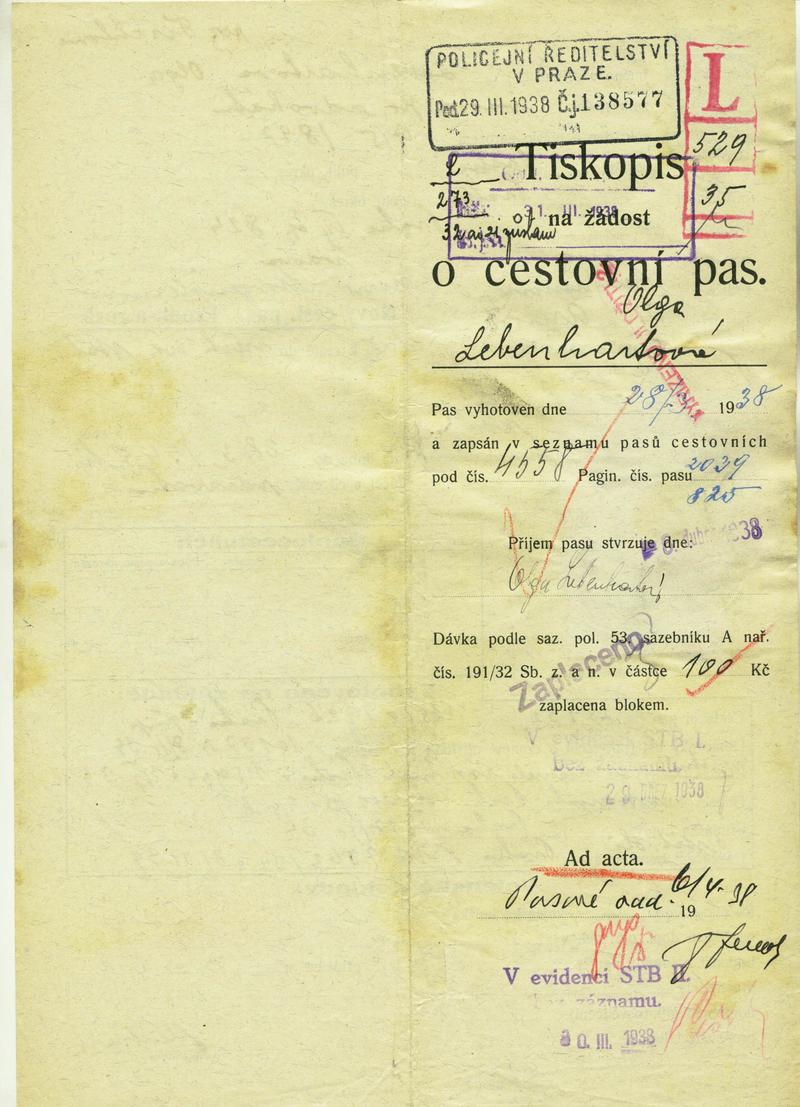 POLICEJNÍ ŘEDITELSTVÍ
V PRAZE.
Pod. 29. III. 1938 Č.j. 138577
L
529
35
Tiskopis
273
31. III. 1938
na žádost
o cestovní pas.
Olga
Lebenhartová
Pas vyhotoven dne 28/3. 1938
a zapsán v seznamu pasů cestovních
pod čís. 4558 Pagin. čís. pasu 2039
825
Příjem pasu stvrzuje dne: 6. dubna 1938
Olga Lebenhartová
Dávka podle saz. pol. 53, sazebníku A nař.
čís. 191/32 Sb. z. a n. v částce 100 Kč
Zaplaceno
zaplacena blokem.
V evidenci STB I.
Bez záznamu.
29. 1938
Ad acta.
Pasové odd. 6/4. 38
19
V evidenci STB II.
bez záznamu.
30. III. 1938